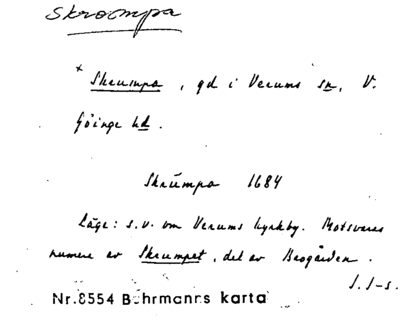 Skroompa
× Skrumpa, gd i Verums sn, V.
Göinge hd.
Skrŭmpa 1684
Läge: s.v. om Verums kyrkby. Motsvaras
numera av Skrumpet, del av Brogården.
J. J-s.
Nr. 8554 Buhrmanns karta